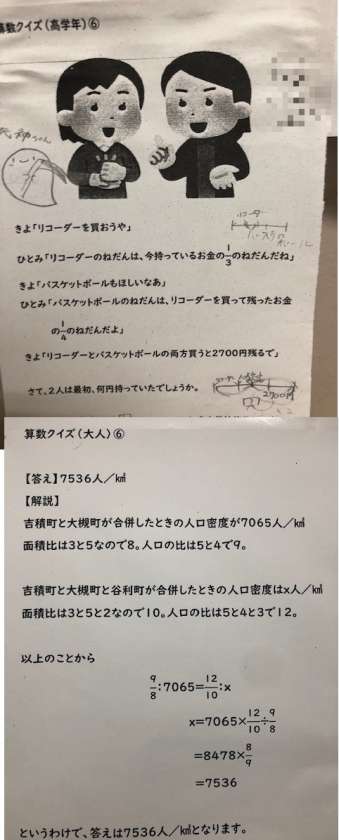 算数クイズ(高学年)⑥
リコーダー
きよ「リコーダーを買おうや」
ひとみ「リコーダーのねだんは、今持っているお金の1/3のねだんだね」
きよ「バスケットボールもほしいなあ」
ひとみ「バスケットボールのねだんは、リコーダーを買って残ったお金
の1/4のねだんだよ」
きよ「リコーダーとバスケットボールの両方買うと2700円残るで」
さて、2人は最初、何円持っていたでしょうか。
2700円
算数クイズ(大人)⑥
【答え】7536人/㎢
【解説】
吉積町と大槻町が合併したときの人口密度が7065人/㎢
面積比は3と5なので8。人口の比は5と4で9。
吉積町と大槻町と谷利町が合併したときの人口密度はx人/㎢
面積比は3と5と2なので10。人口の比は5と4と3で12。
以上のことから
9/8:7065=12/10:x
x=7065×12/10÷9/8
=8478×8/9
=7536
というわけで、答えは7536人/㎢となります。